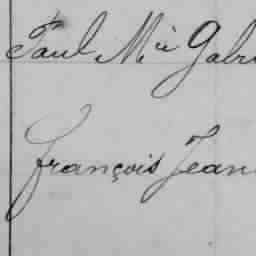 Paul Mie Gabr
François Jean